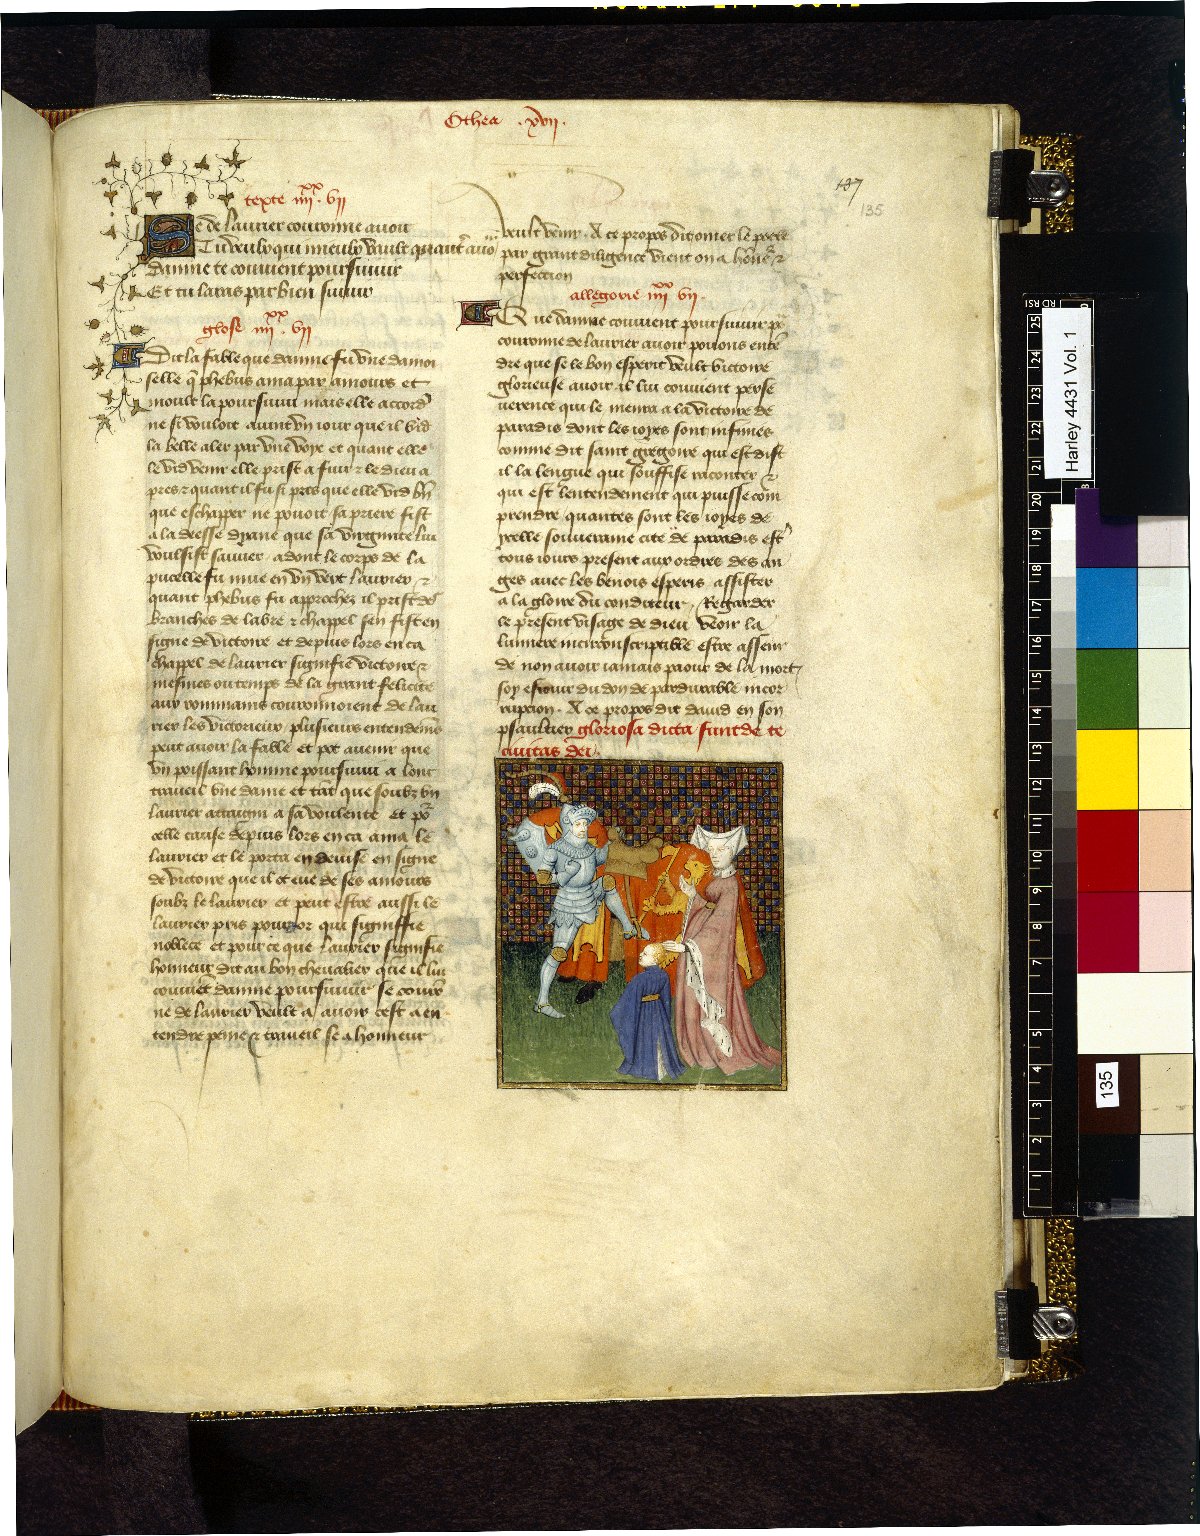 Othea .xvii.
137
135
texte iiii xx. vii
Se de laurier couronne auoir
Tu veulx qui mieulx vault quant auoir
Damne te couuient poursuiuir
Et tu lauras par bien suiuir
glose iiii xx. vii
Dit la fable que damne fu vne damoi
selle que phebus ama par amours et
moult la poursuiui mais elle accord
ne si vouloit auint vn iour que il vid
la belle aler par vne voye et quant elle
le vid venir elle prist a fuir et le dieu a
pres et quant il fu si pres que elle vid bn
que eschapper ne pouoit sa priere fist
a la deesse dyane que sa virginite lui
voulsist sauuer. adont le corps de la
pucelle fu mue en vn vert laurier et
quant phebus fu approchez il prist des
branches de labre et chappel sen fist en
signe de victoire et depuis lors en ca
chappel de laurier signifie victoire et
mesmes ou temps de la grant felicite
aux rommains couronnoient de lau
rier les victorieux plusieurs entendemens
peut auoir la fable et pot auenir que
vn poissant homme poursuiui a lonc
traueil vne dame et tant que soubz vn
laurier attaigni a sa voulente et pour
celle cause depuis lors en ca ama le
laurier et le porta en deuise en signe
de victoire que il ot eue de ses amours
soubz le laurier et peut estre aussi le
laurier pris pour or qui signiffie
noblece et pour ce que laurier signifie
honneur dit au bon cheualier que il lui
couuient damne poursuiuir se couron
ne de laurier veult a auoir cest a en
tendre peine et traueil se a honneur
veult venir. A ce propos dit omer le poete
par grant diligence vient on a
perfection
allegorie iiii xx vii
Que damne couuient poursuiuir pour
couronne de laurier auoir pouons enten
dre que se le bon esperit veult victoire
glorieuse auoir il lui couuient perse
uerence qui le menra a la victoire de
paradis dont les ioyes sont infinies
comme dit saint gregoire qui est dist
il la lengue qui souffise raconter et
qui est lentendement qui puisse com
prendre quantes sont les ioyes de
ycelle souueraine cite de paradis estre
tous iours present aux ordres des an
ges auec les benois esperis assister
a la gloire du conditeur, Regarder
le present visage de dieu veoir la
lumiere incirconscriptible estre asseur
de non auoir iamais paour de la mort
soy esiouir du don de pardurable incor
rupcion. A ce propos dit dauid en son
psaultier gloriosa dicta sunt de te
ciuitas dei.
Harley 4431 Vol. 1
135
RD RSI
25
24
23
22
21
20
19
18
17
16
15
14
13
12
11
10
9
8
7
5
4
3
2
1